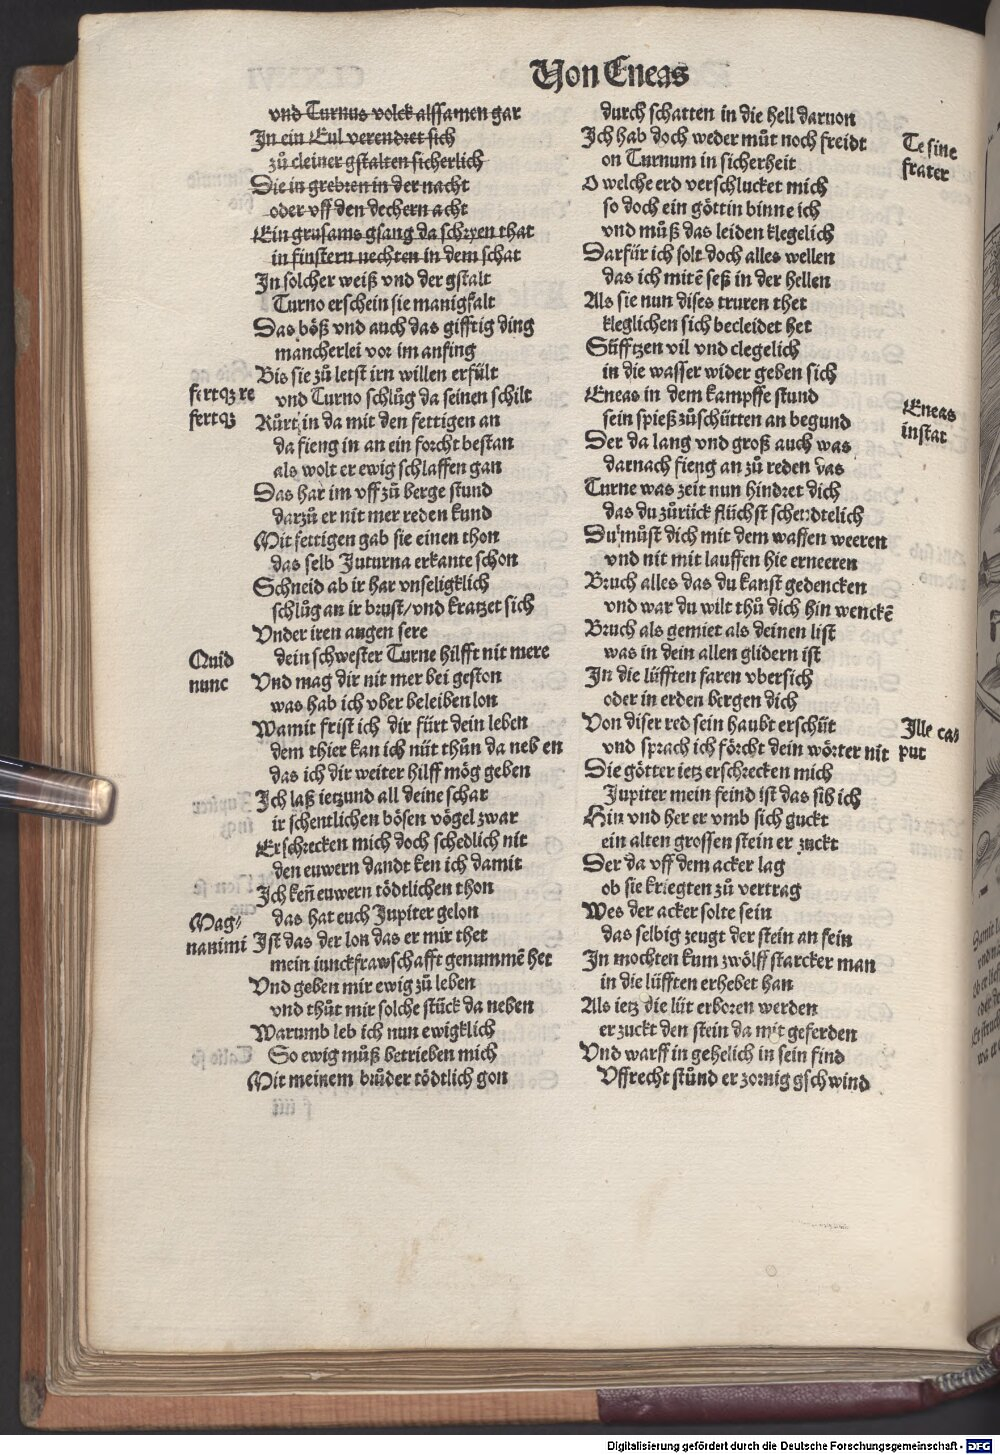 Von Eneas
vnd Turnus volck alssamen gar
In ein Eul verendret sich
zuͦ cleiner gstalten sicherlich
Die in grebren in der nacht
oder vff den dechern acht
Ein grusams gsang da schryen that
in finstern nechten in dem schat
In solcher weiß vnd der gstalt
Turno erschein sie manigfalt
Das boͤß vnd auch das gifftig ding
mancherlei vor im anfing
Bis sie zuͦ letst irn willen erfuͤlt
fertqꝫ re
vnd Turno schluͦg da seinen schilt
fertqꝫ
Ruͤrt in da mit den fettigen an
da fieng in an ein forcht bestan
als wolt er ewig schlaffen gan
Das har im vff zuͦ berge stund
darzuͦ er nit mer reden kund
Mit fettigen gab sie einen thon
das selb Juturna erkante schon
Schneid ab ir har vnseligklich
schluͦg an ir brust/vnd kratzet sich
Vnder iren augen sere
Quid
dein schwester Turne hilfft nit mere
nunc
Vnd mag dir nit mer bei geston
was hab ich vber beleiben lon
Wamit frist ich dir fuͤrt dein leben
dem thier kan ich nuͤt thuͦn da neben
das ich dir weiter hilff moͤg geben
Ich laß ietzund all deine schar
ir schentlichen boͤsen voͤgel zwar
Erschrecken mich doch schedlich nit
den euwern dandt ken ich damit
Ich keñ euwern toͤdtlichen thon
Mag⸗
das hat euch Jupiter gelon
nanimi
Ist das der lon das er mir thet
mein iunckfrawschafft genummē het
Vnd geben mir ewig zuͦ leben
vnd thuͦt mir solche stuͤck da neben
Warumb leb ich nun ewigklich
So ewig muͦß betrieben mich
Mit meinem bruͦder toͤdtlich gon
durch schatten in die hell daruon
Ich hab doch weder muͦt noch freidt
Te sine
on Turnum in sicherheit
frater
O welche erd verschlucket mich
so doch ein goͤttin binne ich
vnd muͦß das leiden klegelich
Darfuͤr ich solt doch alles wellen
das ich mitē seß in der hellen
Als sie nun dises truren thet
kleglichen sich becleidet het
Suͤfftzen vil vnd clegelich
in die wasser wider geben sich
Eneas in dem kampffe stund
Eneas
sein spieß zuͦschuͤtten an begund
instat
Der da lang vnd groß auch was
darnach fieng an zuͦ reden das
Turne was zeit nun hindret dich
das du zuͦruͤck fluͤchst schendtelich
Du muͦst dich mit dem waffen weeren
vnd nit mit lauffen hie erneeren
Bruch alles das du kanst gedencken
vnd war du wilt thuͦ dich hin wenckē
Bruch als gemiet als deinen list
was in dein allen glidern ist
In die luͤfften faren vbersich
oder in erden bergen dich
Von diser red sein haubt erschuͤt
Ille cas
vnd sprach ich foͤrcht dein woͤrter nit
put
Die goͤtter ietz erschrecken mich
Jupiter mein feind ist das sib ich
Hin vnd her er vmb sich guckt
ein alten grossen stein er zuckt
Der da vff dem acker lag
ob sie kriegten zuͦ vertrag
Wes der acker solte sein
das selbig zeugt der stein an fein
In mochten kum zwoͤlff starcker man
in die luͤfften erhebet han
Als ietz die luͤt erboren werden
er zuckt den stein da mit geferden
Vnd warff in gehelich in sein find
Vffrecht stuͦnd er zornig gschwind
Digitalisierung gefördert durch die Deutsche Forschungsgemeinschaft - DFG